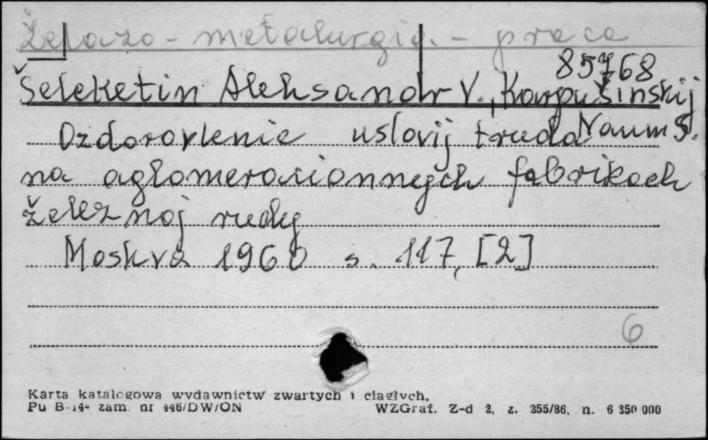 Żelazo - metalurgia - praca
85768
Šeleketin Aleksandr V., Karpušinskij
Ozdorovlenie uslovij truda Naum S.
na aglomeracionnych fabrikach
železnoj rudy
Moskva 1960 s. 117, [2]
6
Karta katalogowa wydawnictw zwartych i ciągłych.
Pu B-144 zam. nr 446/DW/ON WZGraf. Z-d 2, z. 255/86, n. 6 350 000